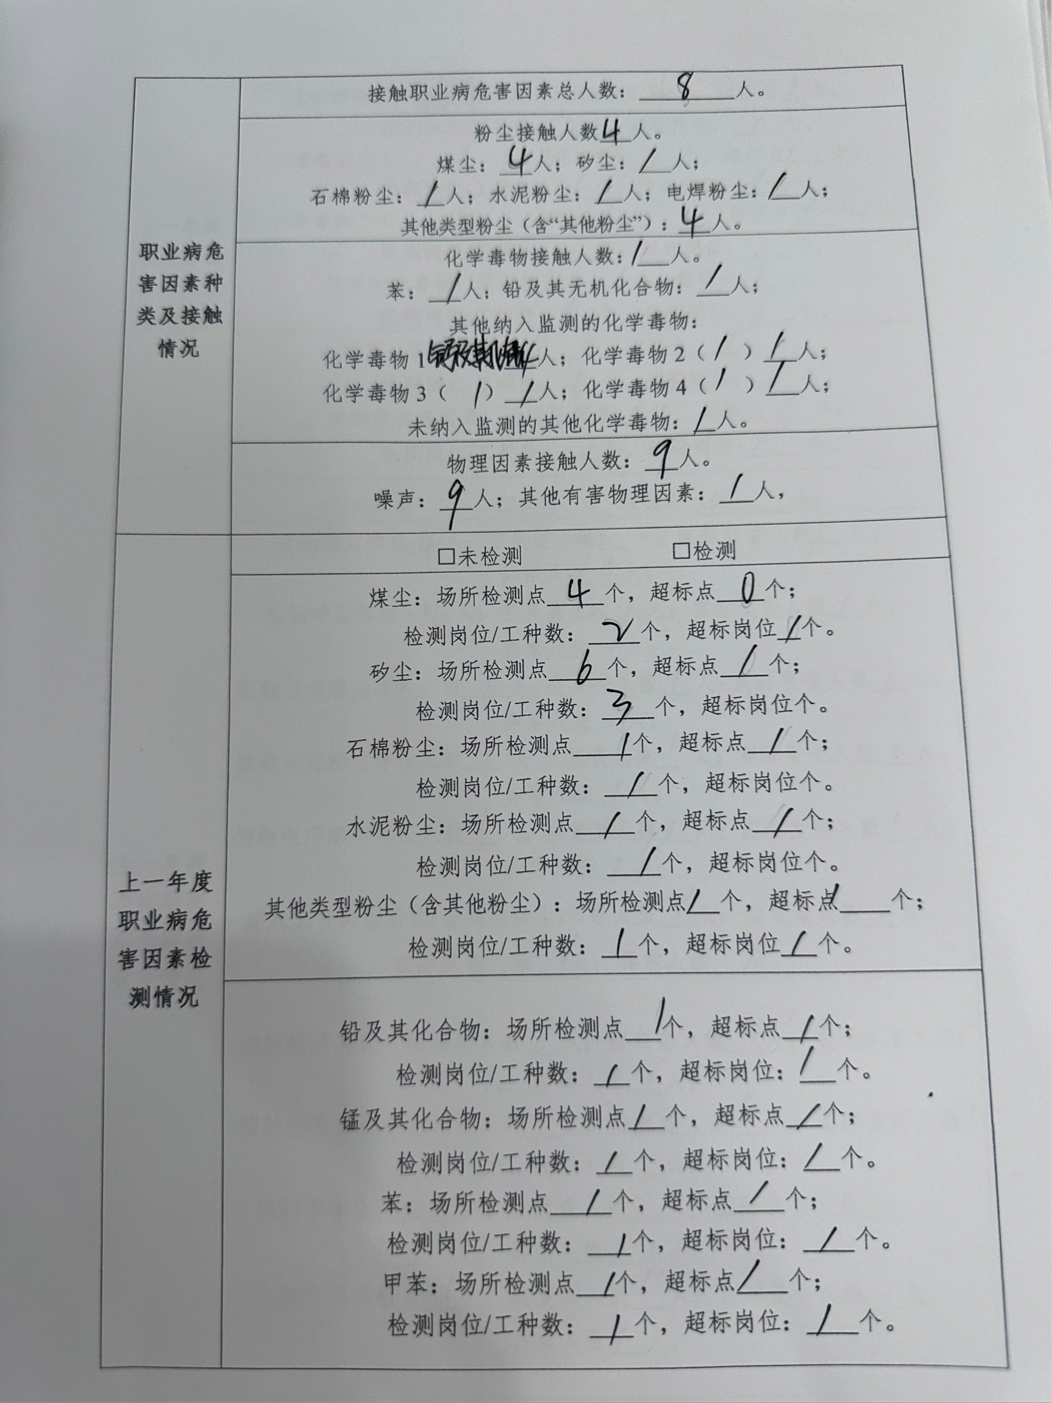 接触职业病危害因素总人数：8人。
粉尘接触人数4人。
煤尘：4人；矽尘：/人；
石棉粉尘：/人；水泥粉尘：/人；电焊粉尘：/人；
其他类型粉尘（含“其他粉尘”）：4人。
职业病危
害因素种
类及接触
情况
化学毒物接触人数：/人。
苯：/人；铅及其无机化合物：/人；
其他纳入监测的化学毒物：
化学毒物1 4人；化学毒物2（/）/人；
化学毒物3（/）/人；化学毒物4（/）/人；
未纳入监测的其他化学毒物：/人。
物理因素接触人数：9人。
噪声：9人；其他有害物理因素：/人，
□未检测 □检测
煤尘：场所检测点4个，超标点0个；
检测岗位/工种数：2个，超标岗位/个。
矽尘：场所检测点6个，超标点/个；
检测岗位/工种数：3个，超标岗位个。
石棉粉尘：场所检测点/个，超标点/个；
检测岗位/工种数：/个，超标岗位个。
水泥粉尘：场所检测点/个，超标点/个；
检测岗位/工种数：/个，超标岗位个。
其他类型粉尘（含其他粉尘）：场所检测点/个，超标点/个；
检测岗位/工种数：/个，超标岗位/个。
上一年度
职业病危
害因素检
测情况
铅及其化合物：场所检测点/个，超标点/个；
检测岗位/工种数：/个，超标岗位：/个。
锰及其化合物：场所检测点/个，超标点/个；
检测岗位/工种数：/个，超标岗位：/个。
苯：场所检测点/个，超标点/个；
检测岗位/工种数：/个，超标岗位：/个。
甲苯：场所检测点/个，超标点/个；
检测岗位/工种数：/个，超标岗位：/个。